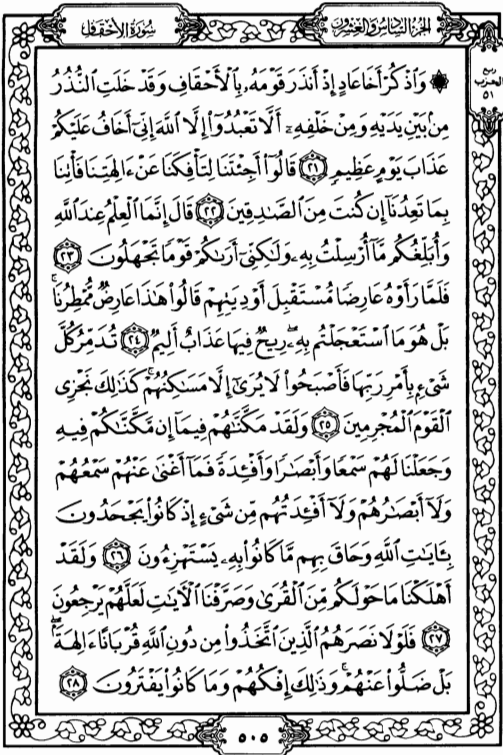 سُورَةُ الأَحْقَافِ
الجُزْءُ السَّادِسُ وَالعِشْرُونَ
ربع
الحزب
٥١
۞ وَاذْكُرْ أَخَا عَادٍ إِذْ أَنذَرَ قَوْمَهُۥ بِالْأَحْقَافِ وَقَدْ خَلَتِ النُّذُرُ
مِنۢ بَيْنِ يَدَيْهِ وَمِنْ خَلْفِهِۦٓ أَلَّا تَعْبُدُوٓا۟ إِلَّا اللَّهَ إِنِّىٓ أَخَافُ عَلَيْكُمْ
عَذَابَ يَوْمٍ عَظِيمٍ ٢١ قَالُوٓا۟ أَجِئْتَنَا لِتَأْفِكَنَا عَنْ ءَالِهَتِنَا فَأْتِنَا
بِمَا تَعِدُنَآ إِن كُنتَ مِنَ الصَّٰدِقِينَ ٢٢ قَالَ إِنَّمَا الْعِلْمُ عِندَ اللَّهِ
وَأُبَلِّغُكُم مَّآ أُرْسِلْتُ بِهِۦ وَلَٰكِنِّىٓ أَرَىٰكُمْ قَوْمًا تَجْهَلُونَ ٢٣
فَلَمَّا رَأَوْهُ عَارِضًا مُّسْتَقْبِلَ أَوْدِيَتِهِمْ قَالُوا۟ هَٰذَا عَارِضٌ مُّمْطِرُنَا ۚ
بَلْ هُوَ مَا اسْتَعْجَلْتُم بِهِۦ ۖ رِيحٌ فِيهَا عَذَابٌ أَلِيمٌ ٢٤ تُدَمِّرُ كُلَّ
شَىْءٍۭ بِأَمْرِ رَبِّهَا فَأَصْبَحُوا۟ لَا يُرَىٰٓ إِلَّا مَسَٰكِنُهُمْ ۚ كَذَٰلِكَ نَجْزِى
الْقَوْمَ الْمُجْرِمِينَ ٢٥ وَلَقَدْ مَكَّنَّٰهُمْ فِيمَآ إِن مَّكَّنَّٰكُمْ فِيهِ
وَجَعَلْنَا لَهُمْ سَمْعًا وَأَبْصَٰرًا وَأَفْـِٔدَةً فَمَآ أَغْنَىٰ عَنْهُمْ سَمْعُهُمْ
وَلَآ أَبْصَٰرُهُمْ وَلَآ أَفْـِٔدَتُهُم مِّن شَىْءٍ إِذْ كَانُوا۟ يَجْحَدُونَ
بِـَٔايَٰتِ اللَّهِ وَحَاقَ بِهِم مَّا كَانُوا۟ بِهِۦ يَسْتَهْزِءُونَ ٢٦ وَلَقَدْ
أَهْلَكْنَا مَا حَوْلَكُم مِّنَ الْقُرَىٰ وَصَرَّفْنَا الْـَٔايَٰتِ لَعَلَّهُمْ يَرْجِعُونَ
٢٧ فَلَوْلَا نَصَرَهُمُ الَّذِينَ اتَّخَذُوا۟ مِن دُونِ اللَّهِ قُرْبَانًا ءَالِهَةًۢ ۖ
بَلْ ضَلُّوا۟ عَنْهُمْ ۚ وَذَٰلِكَ إِفْكُهُمْ وَمَا كَانُوا۟ يَفْتَرُونَ ٢٨
٥٠٥